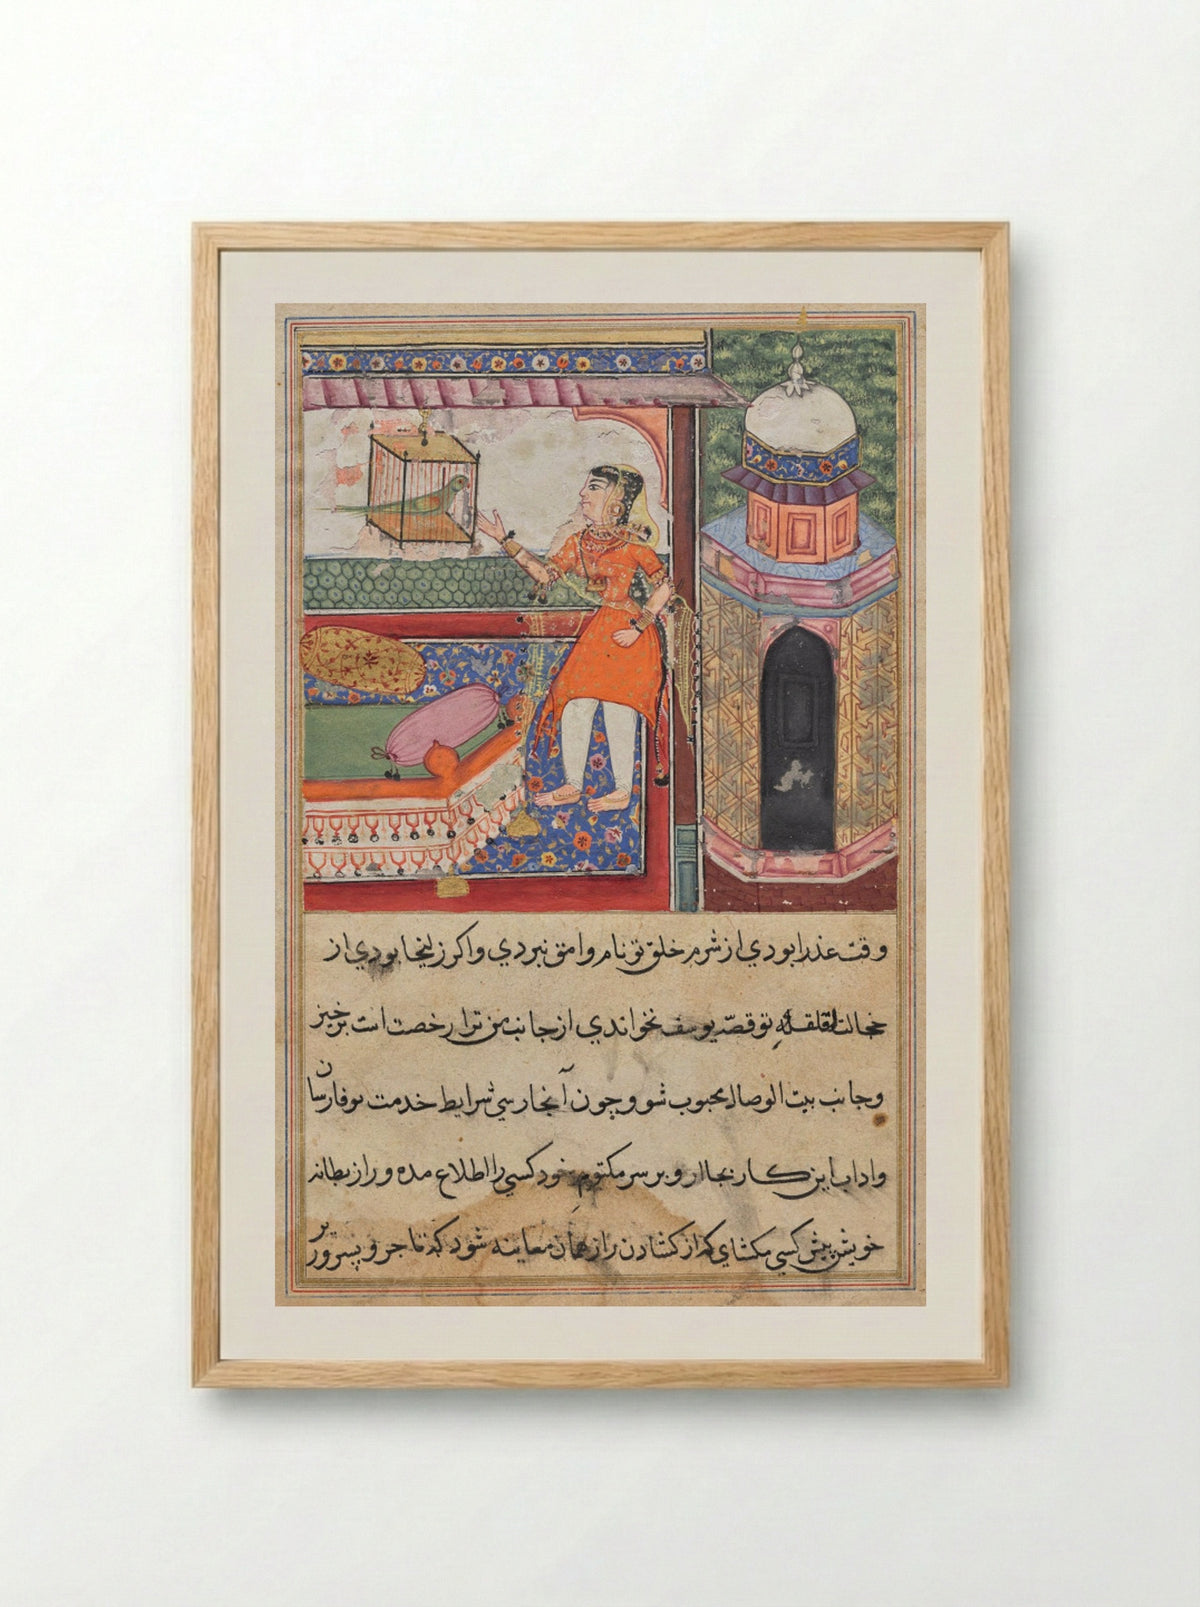 وقت عذرا بودي از شرم خلق تو نام وامق نبردي واكر زليخا بودي از
خجالت لقلقله تو قصّه يوسف نخواندي از جانب من ترا رخصت است برخيز
وجانب بيت الوصال محبوب شو وچون آنجا رسي شرايط خدمت نوفارسان
واداب اين كار بجا ار و بر سر مكتوم خود كسي را اطلاع مده و راز بطانه
خويش پيش كسي مكشاي كه از كشادن راز همان معاينه شود كه تاجر و پسر زرر